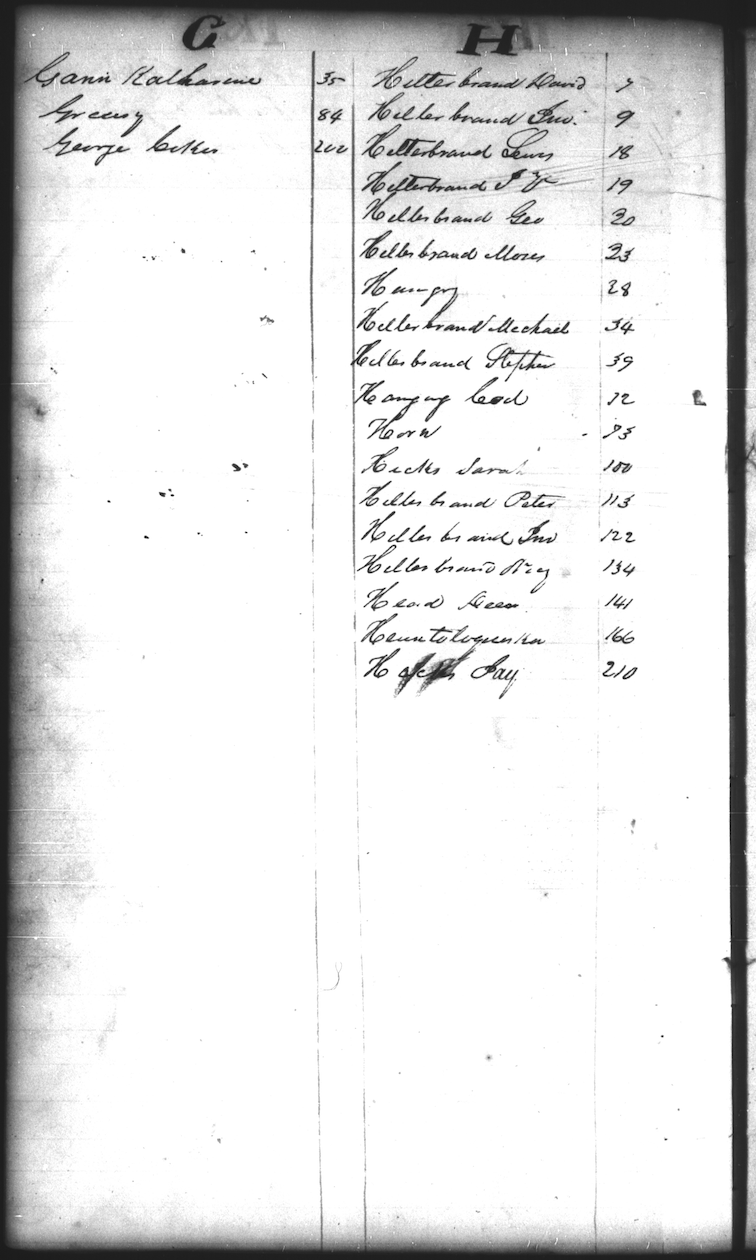 G
Gann Katharine 35
Greasy 84
George 202
H
Hilterbrand David 7
Hillerbrand Jno. 9
Hilterbrand Lewis 18
Hilterbrand 19
Hillerbrand Geo 20
Hillerbrand Moses 23
Hungry 28
Hillerbrand Michael 34
Hillerbrand Stephen 39
Hanging
Horn
Hicks Sarah 100
Hillerbrand Peter 113
Hillerbrand Jno 122
Hillerbrand 134
Head 141
166
Hicks Jay 210